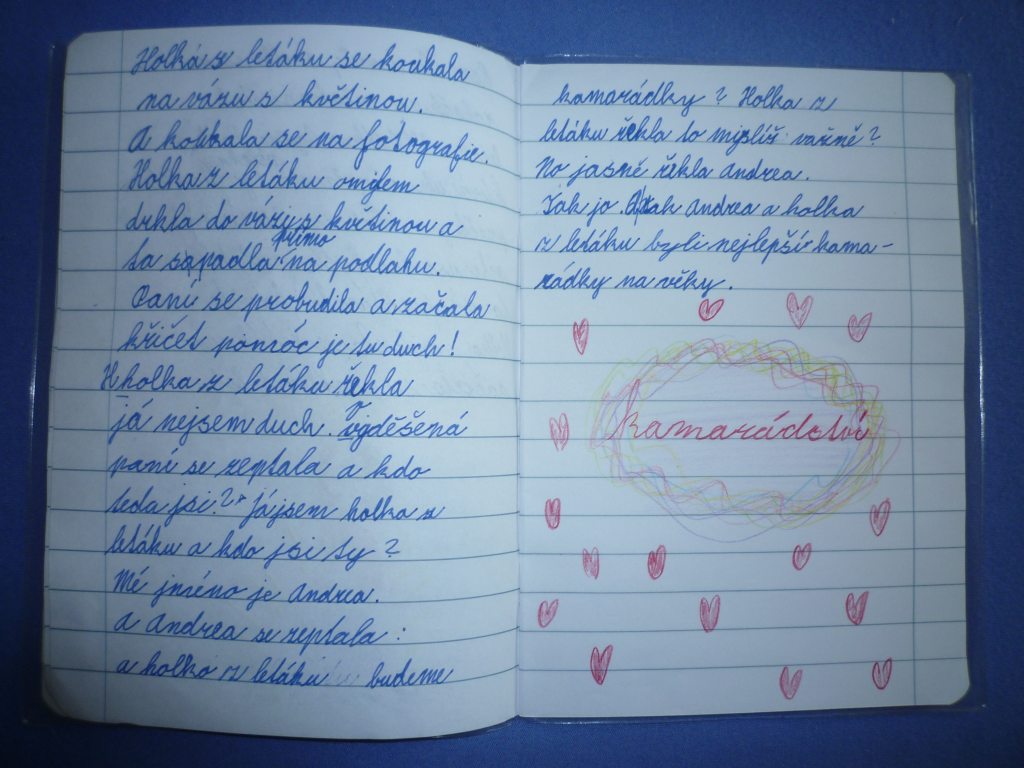 Holka z letáku se koukala
na vázu s květinou.
A koukala se na fotografie.
Holka z letáku omylem
drkla do vázy s květinou a
ta spadla přímo na podlahu.
Paní se probudila a začala
křičet pomóc je tu duch!
Hholka z letáku řekla
já nejsem duch. Vyděšená
paní se zeptala a kdo
teda jsi? Já jsem holka z
letáku a kdo jsi ty?
Mé jméno je Andrea.
A Andrea se zeptala:
a holko z letáku budeme
kamarádky? Holka z
letáku řekla to myslíš vážně?
No jasné řekla Andrea.
Tak jo. A tak Andrea a holka
z letáku byli nejlepší kama-
rádky na věky.
kamarádství